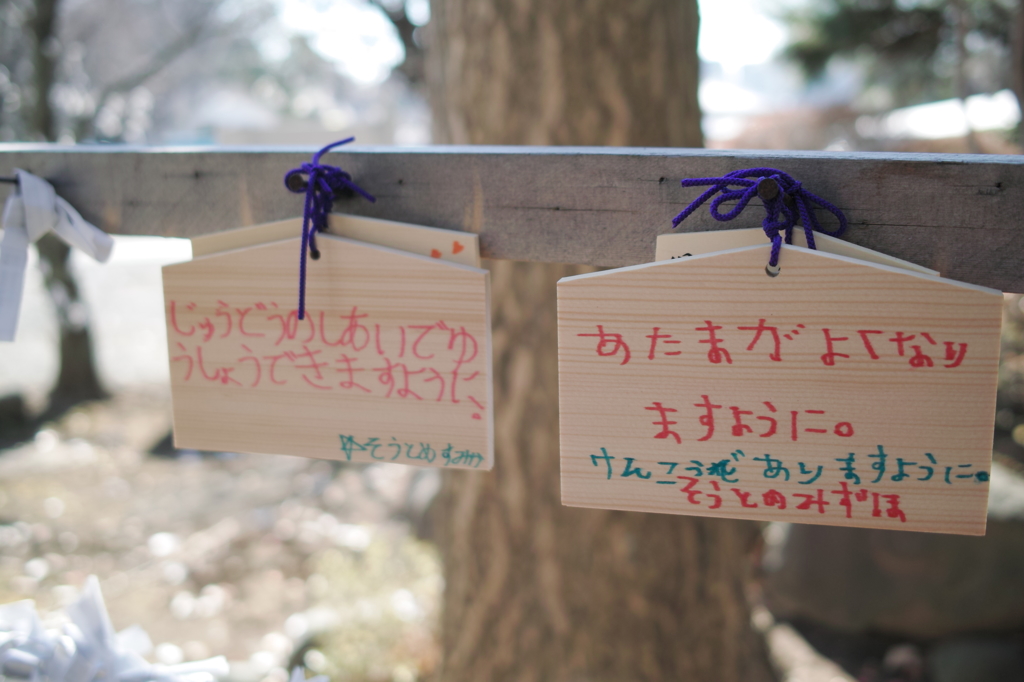 じゅうどうのしあいでゆ
うしょうできますように。
そうとめすみか
あたまがよくなり
ますように。
けんこうでありますように。
そうとめみずほ